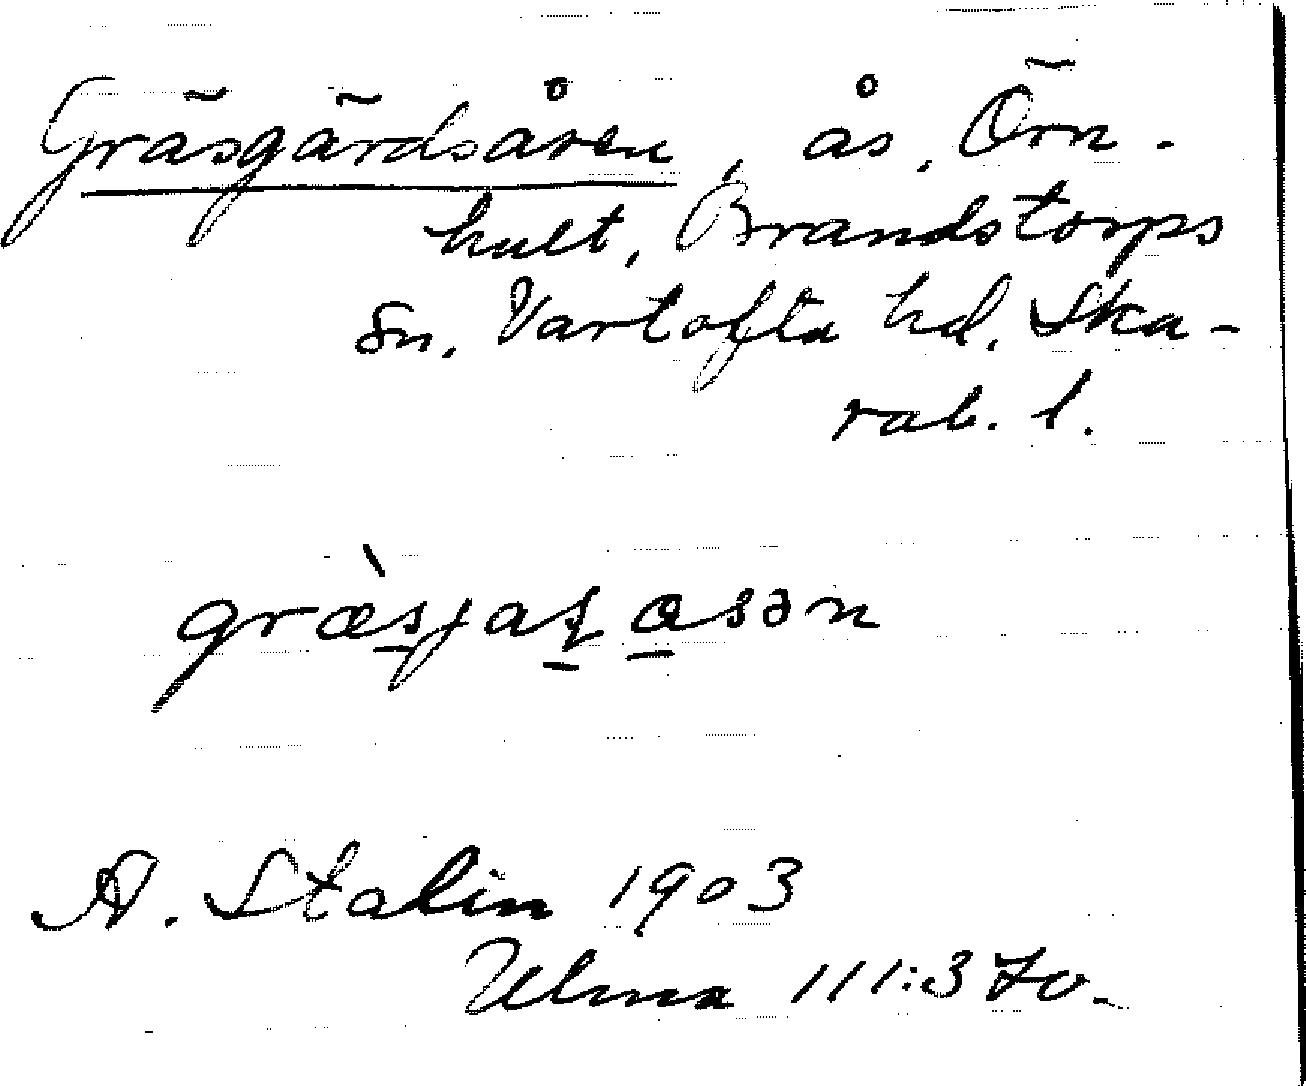 Gräsgärdsåsen, ås, Örn-
hult, Brandstorps
sn. Vartofta hd. Ska-
rab. l.
A. Stalin 1903
Ulma 111:370.